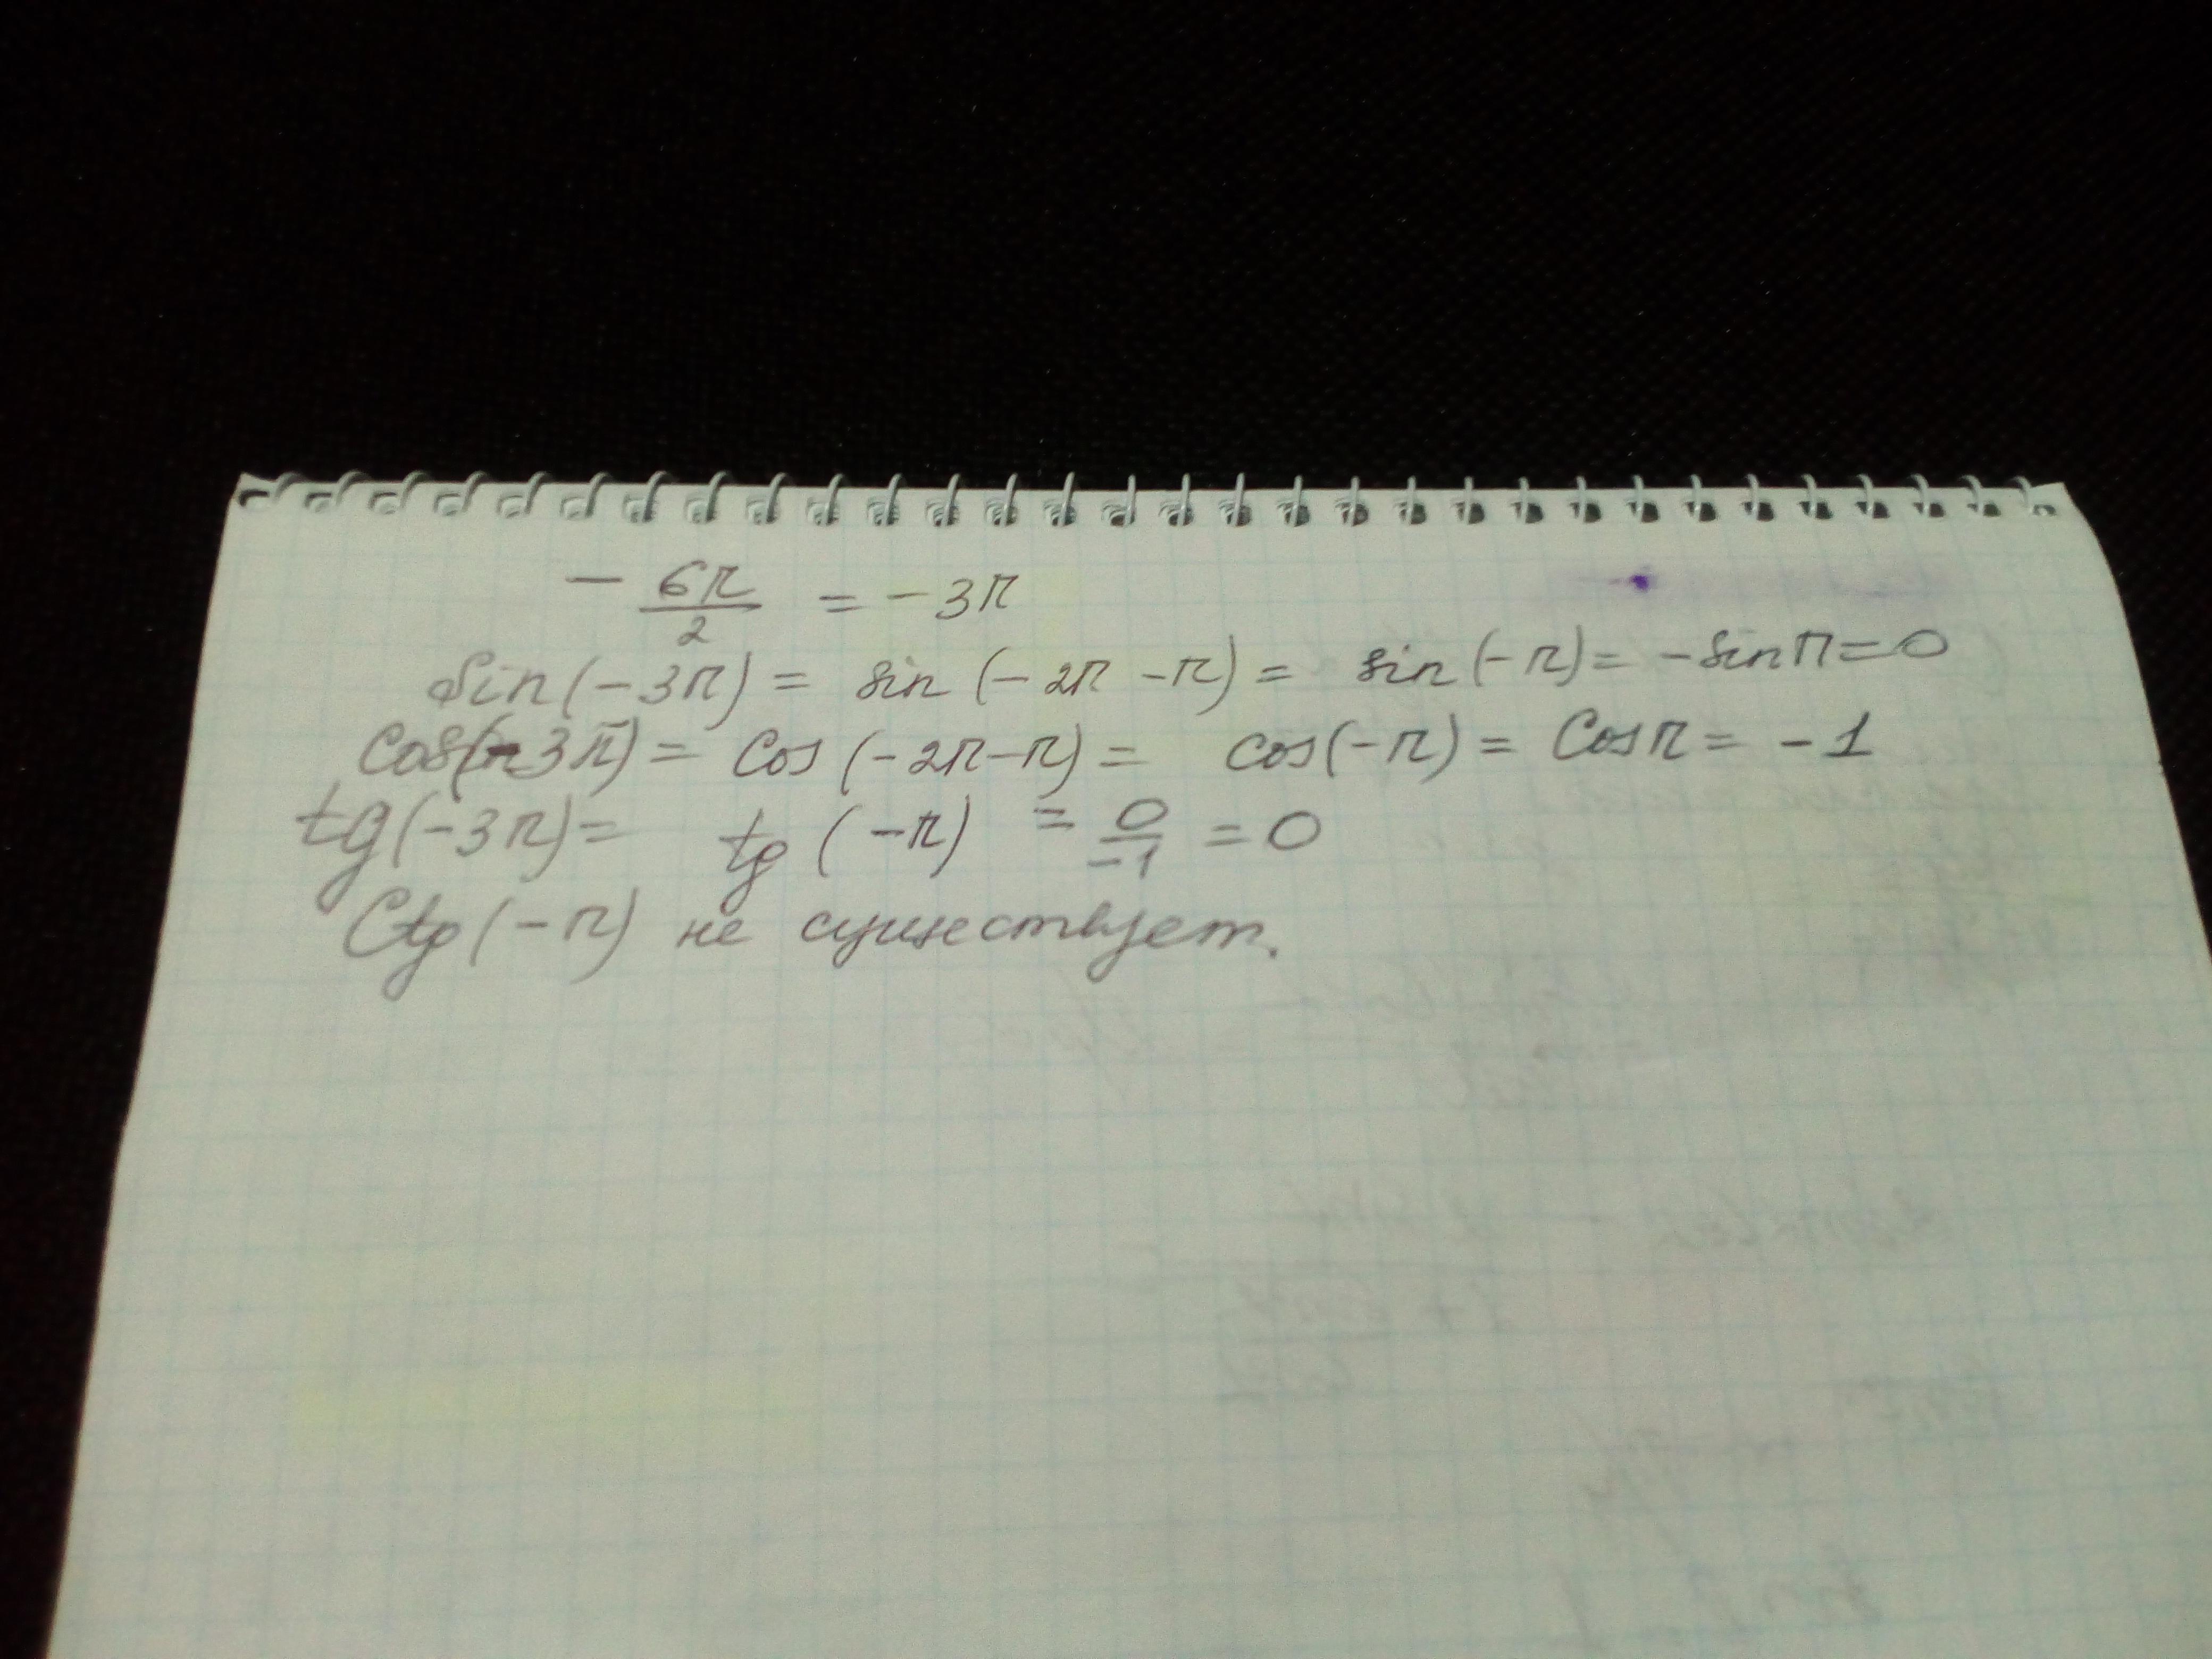 - 6π/2 = -3π
sin(-3π) = sin(-2π-π) = sin(-π) = -sinπ=0
Cos(-3π) = Cos(-2π-π) = cos(-π) = Cosπ = -1
tg(-3π) = tg(-π) = 0/-1 = 0
Ctg(-π) не существует.